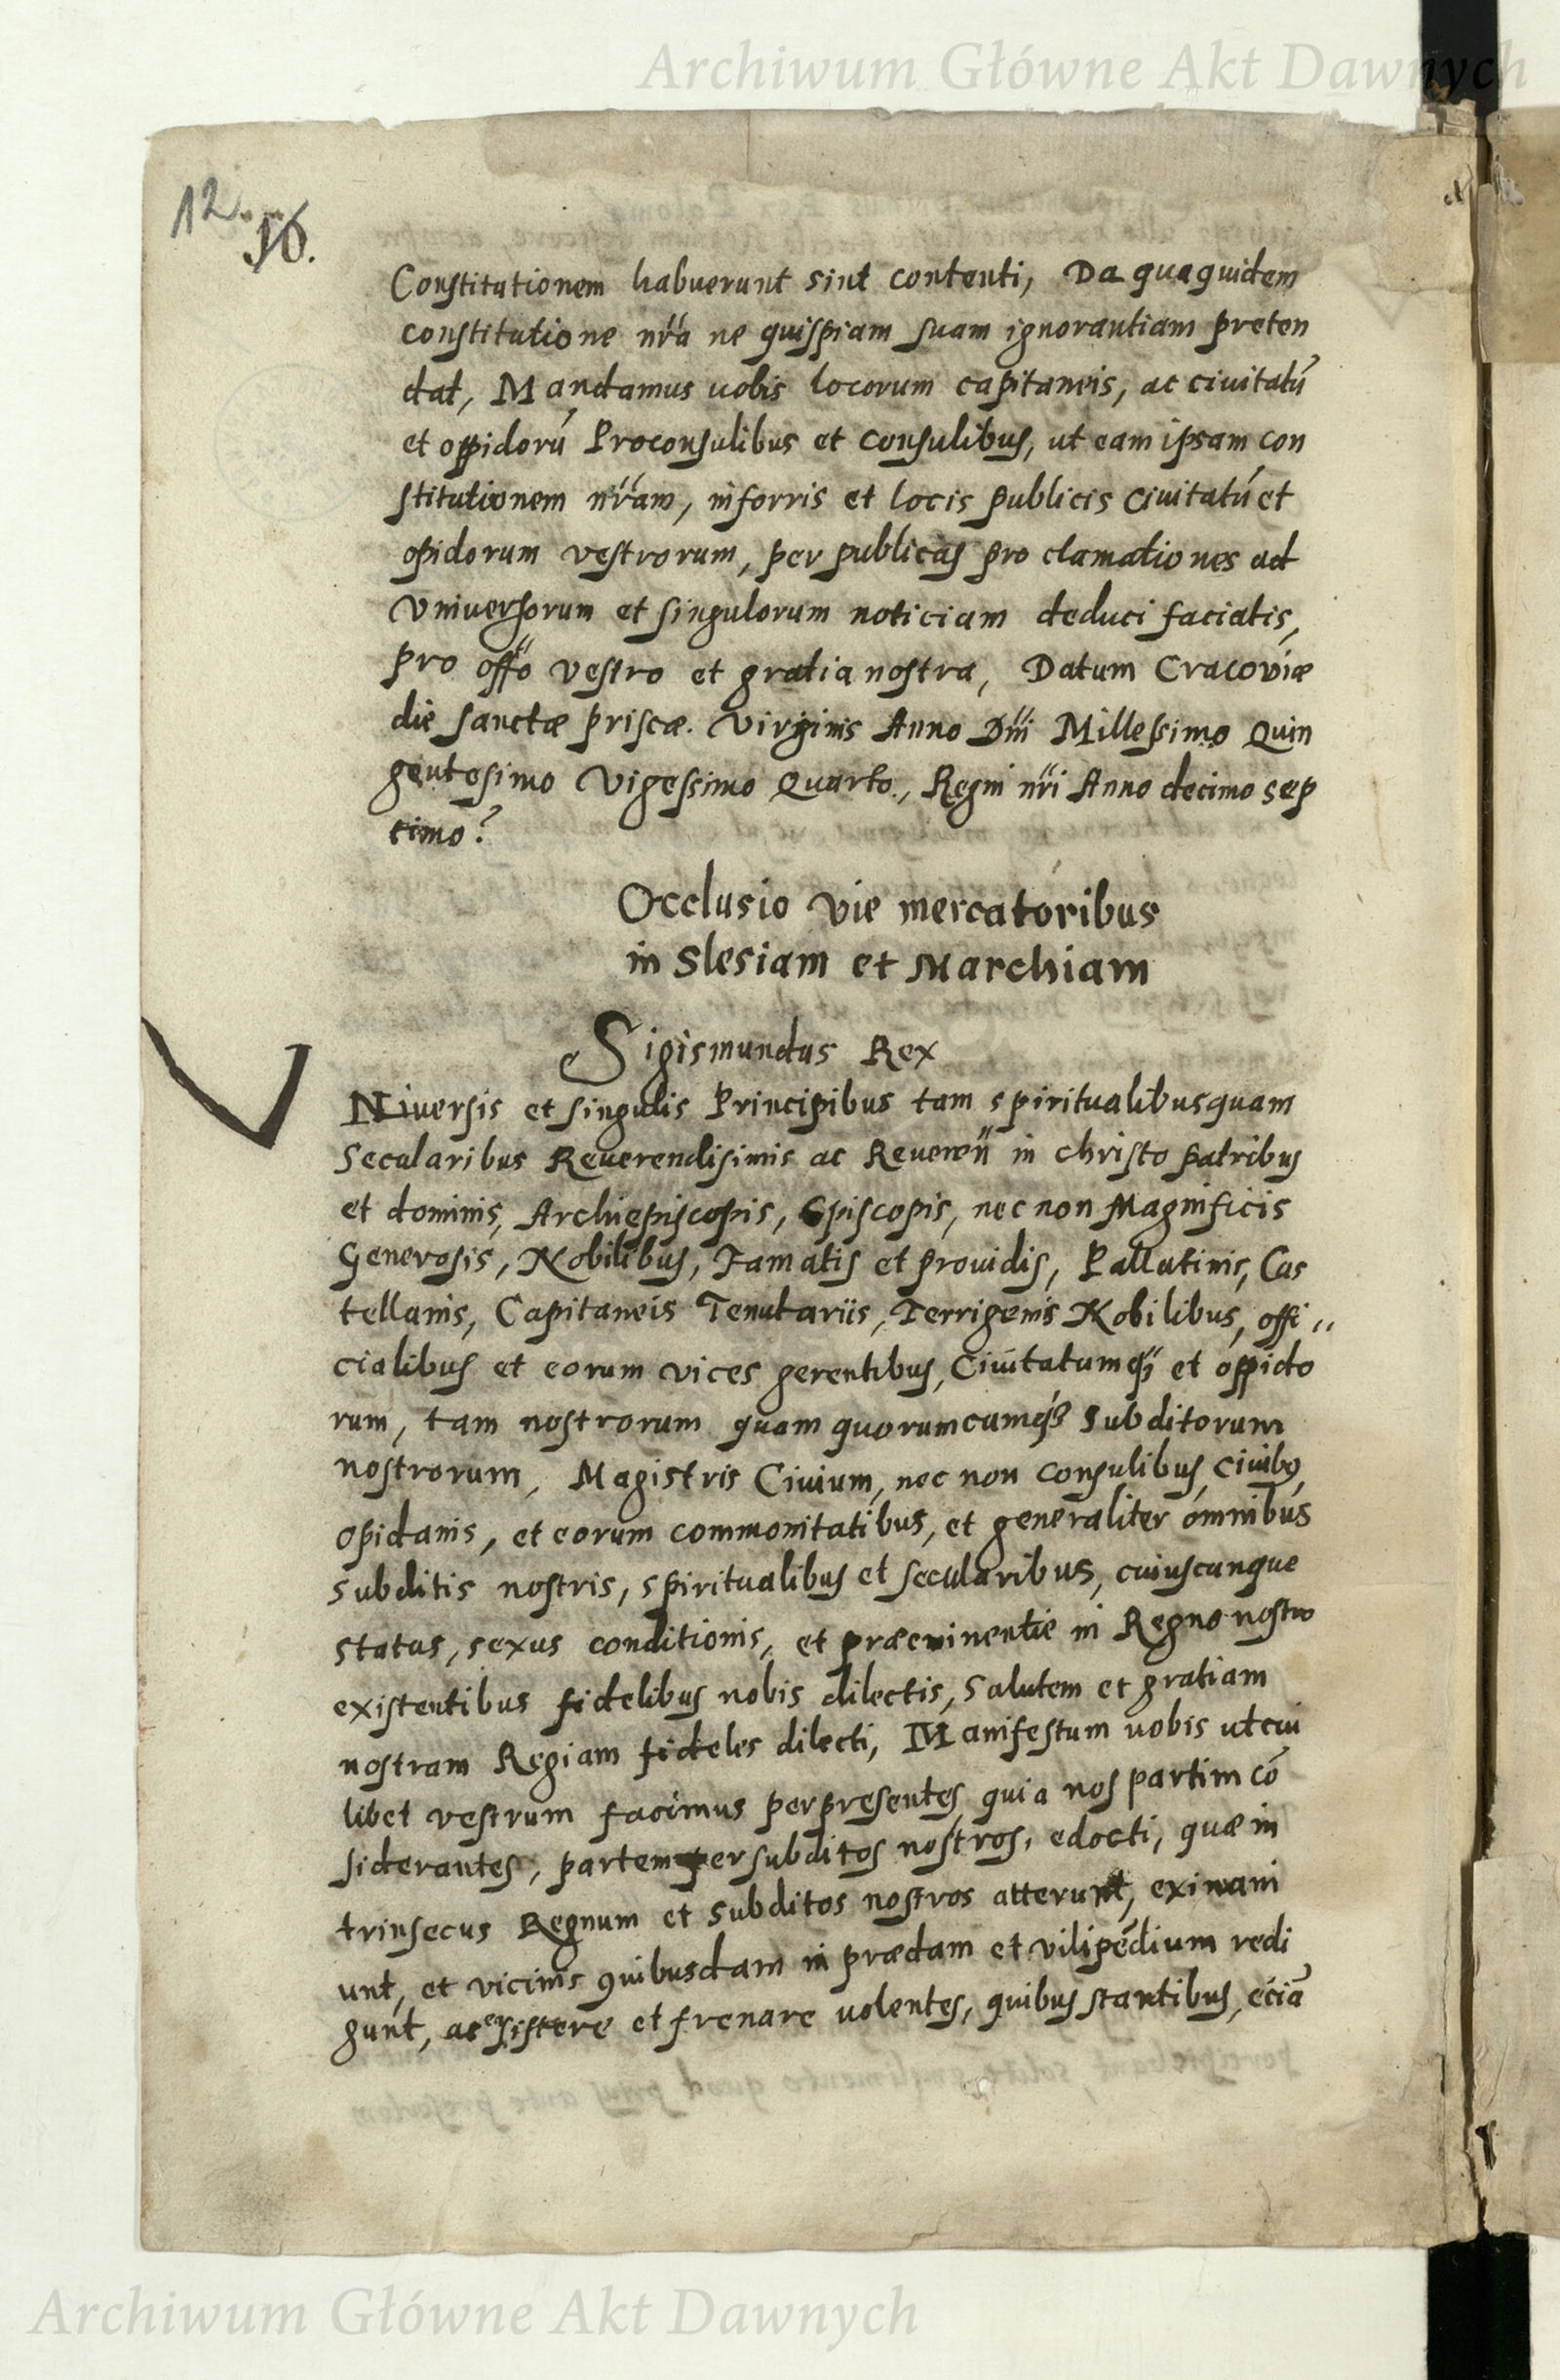 Archiwum Główne Akt Dawnych
12.
16.
Constitutionem habuerunt sint contenti, Da qua quidem
constitutione nr̃a ne quispiam suam ignorantiam preten
dat, Mandamus uobis locorum capitaneis, ac civitatũ
et oppidorũ Proconsulibus et Consulibus, ut eam ipsam con
stitutionem nr̃am, in forris et locis publicis Civitatũ et
opidorum vestrorum, per publicas pro clamationes ad
Vniversorum et singulorum noticiam deduci faciatis,
pro offo vestro et gratia nostra, Datum Cracoviæ
die sanctæ priscæ. Virginis Anno Dñi Millessimo Quin
gentesimo Vigessimo Quarto., Regni nr̃i Anno decimo sep
timo?
Occlusio vie mercatoribus
in Slesiam et Marchiam
Sigismundus Rex
VNiversis et singulis Principibus tam spiritualibus quam
Secularibus Reuerendisimis ac Reueren in christo patribus
et dominis, Archiepiscopis, Episcopis, nec non Magnificis
Generosis, Nobilibus, Famatis et prouidis, Pallatinis, Cas
tellanis, Capitaneis Tenutariis, Terrigenis Nobilibus, offi „
cialibus et eorum vices gerentibus, Ciuitatumq; et oppido
rum, tam nostrorum quam quorumcumq; Subditorum
nostrorum, Magistris Civium, nec non consulibus, civibꝰ
opidanis, et eorum commonitatibus, et generaliter omnibus
subditis nostris, spiritualibus et secularibus, cuiuscunque
status, sexus conditionis, et præeminentie in Regno nostro
existentibus fidelibus nobis dilectis, Salutem et gratiam
nostram Regiam fideles dilecti, Manifestum uobis ut cui
libet vestrum facimus per presentes, quia nos partim cõ
siderantes, partem per subditos nostros, edocti, quæ in
trinsecus Regnum et Subditos nostros atterunt, exinani
unt, et vicinis quibusdam in prædam et vilipẽdium redi
gunt, ac ea sistere et frenare uolentes, quibus stantibus, eciã
Archiwum Główne Akt Dawnych